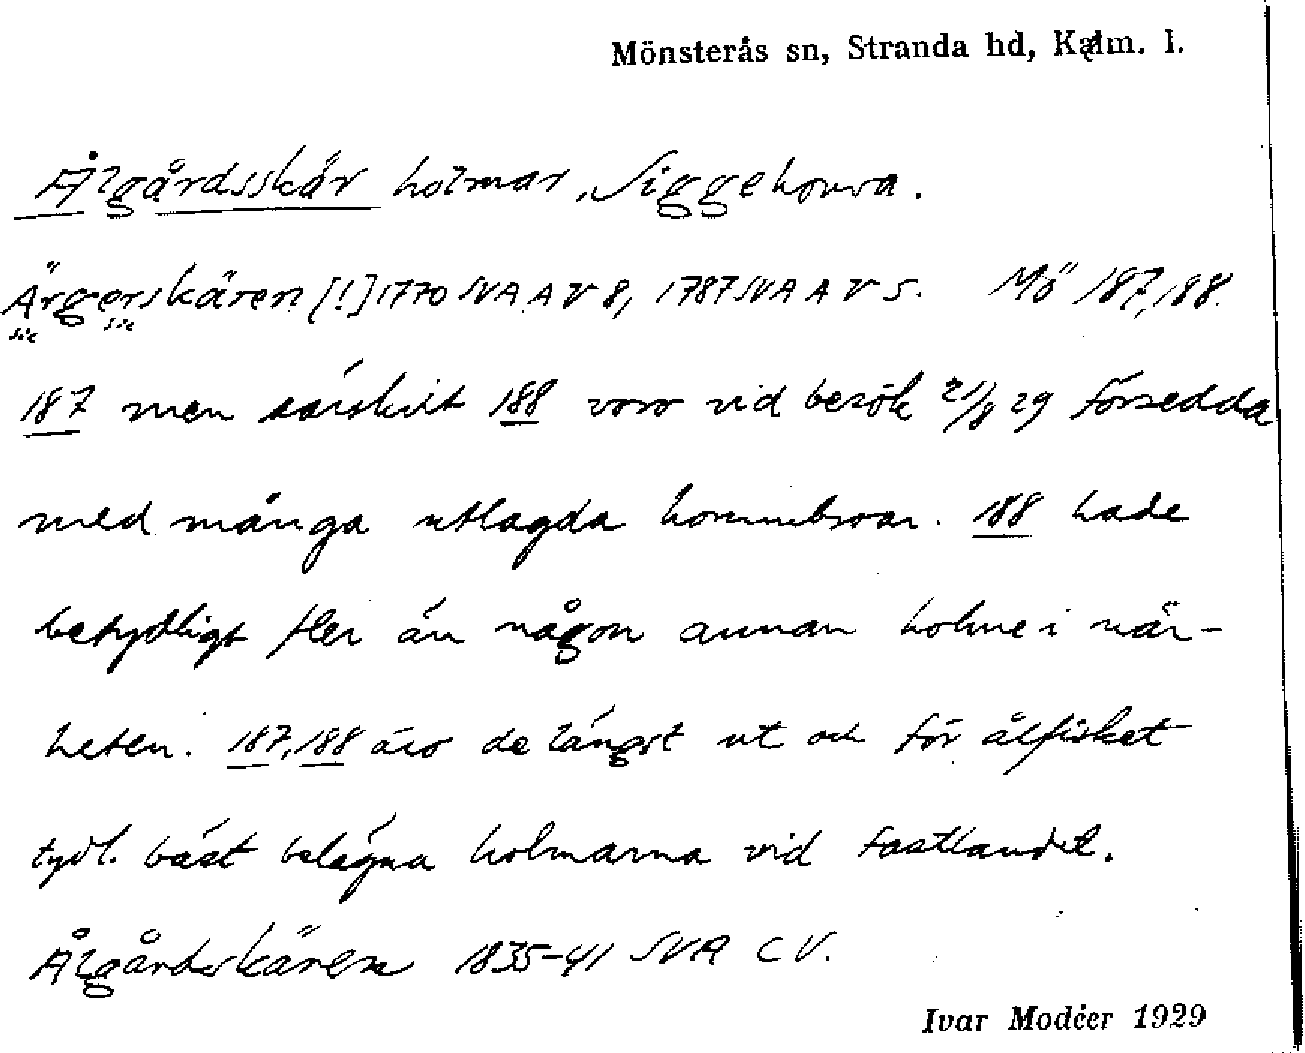 Mönsterås sn, Stranda hd, Kalm. l.
Ålgårdsskär holmar, Siggehorva.
Ärgerskären [!] 1770 SVA A V 8, 1787 SVA A V 5. Mö 187, 188.
sic sic
187 men särskilt 188 voro vid besök 21/8 29 försedda
med många utlagda hommebroar. 188 hade
betydligt fler än någon annan holme i när-
heten. 187, 188 äro de längst ut och för ålfisket
tydl. bäst belägna holmarna vid fastlandet.
Ålgårdskären 1835-41 SVA C V.
Ivar Modéer 1929